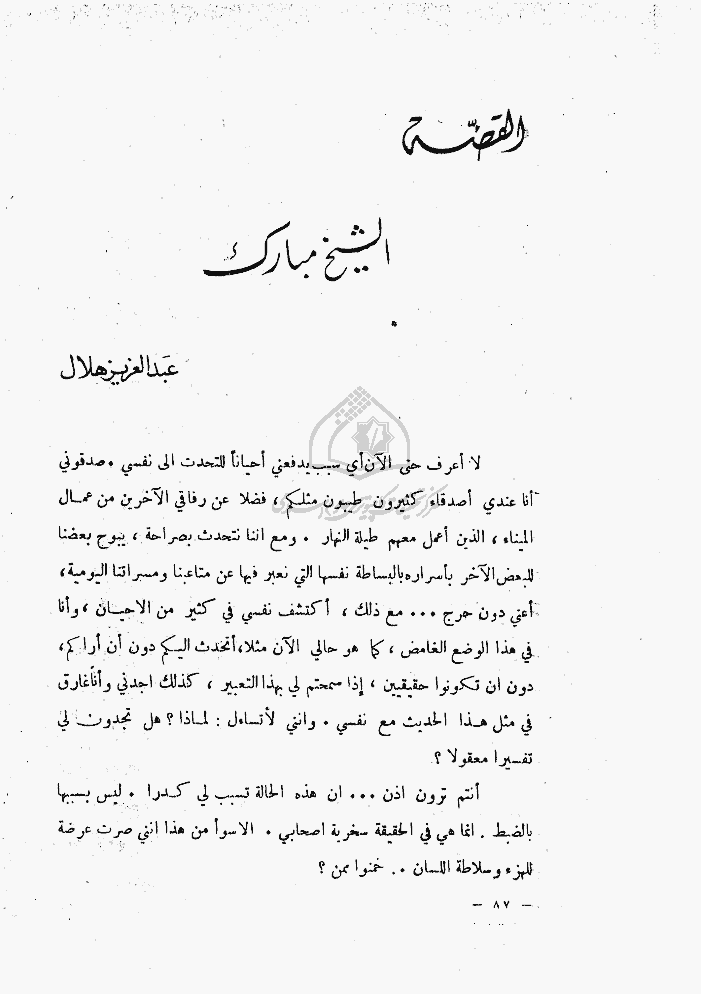 القصّة
الشيخ مبارك
عبد العزيز هلال
لا أعرف حتى الآن أي سبب يدفعني أحياناً للتحدت الى نفسي . صدقوني
أنا عندي أصدقاء كثيرون طيبون مثلكم ، فضلا عن رفاقي الآخرين من عمال
الميناء ، الذين أعمل معهم طيلة النهار . ومع اننا نتحدث بصراحة ، يبوح بعضنا
للبعض الآخر بأسراره بالبساطة نفسها التي نعبر فيها عن متاعبنا ومسراتنا اليومية ،
أعني دون حرج ... مع ذلك ، أكتشف نفسي في كثير من الاحيان ، وأنا
في هذا الوضع الغامض ، كما هو حالي الآن مثلا ، أتحدث اليكم دون أن أراكم ،
دون ان تكونوا حقيقيين ، إذا سمحتم لي بهذا التعبير ، كذلك اجدني وأنا غارق
في مثل هذا الحديث مع نفسي . وانني لأتساءل : لماذا ؟ هل تجدون لي
تفسيرا معقولا ؟
أنتم ترون اذن ... ان هذه الحالة تسبب لي كدرا . ليس بسببها
بالضبط . انما هي في الحقيقة سخرية اصحابي . الاسوأ من هذا انني صرت عرضة
للهزء وسلاطة اللسان .. خمنوا ممن ؟
— ٨٧ —